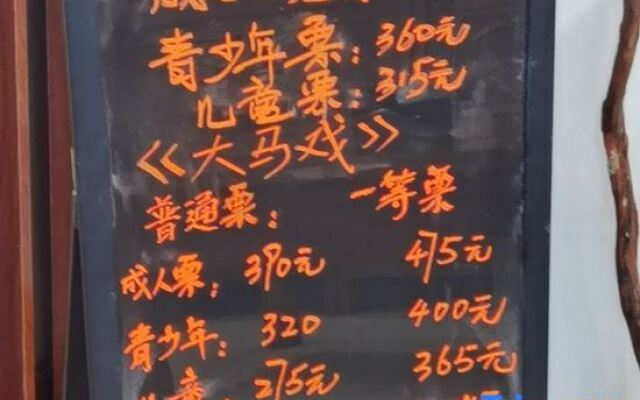 青少年票：360元
儿童票：315元
《大马戏》
普通票： 一等票
成人票： 390元 475元
青少年： 320 400元
儿童： 275元 365元